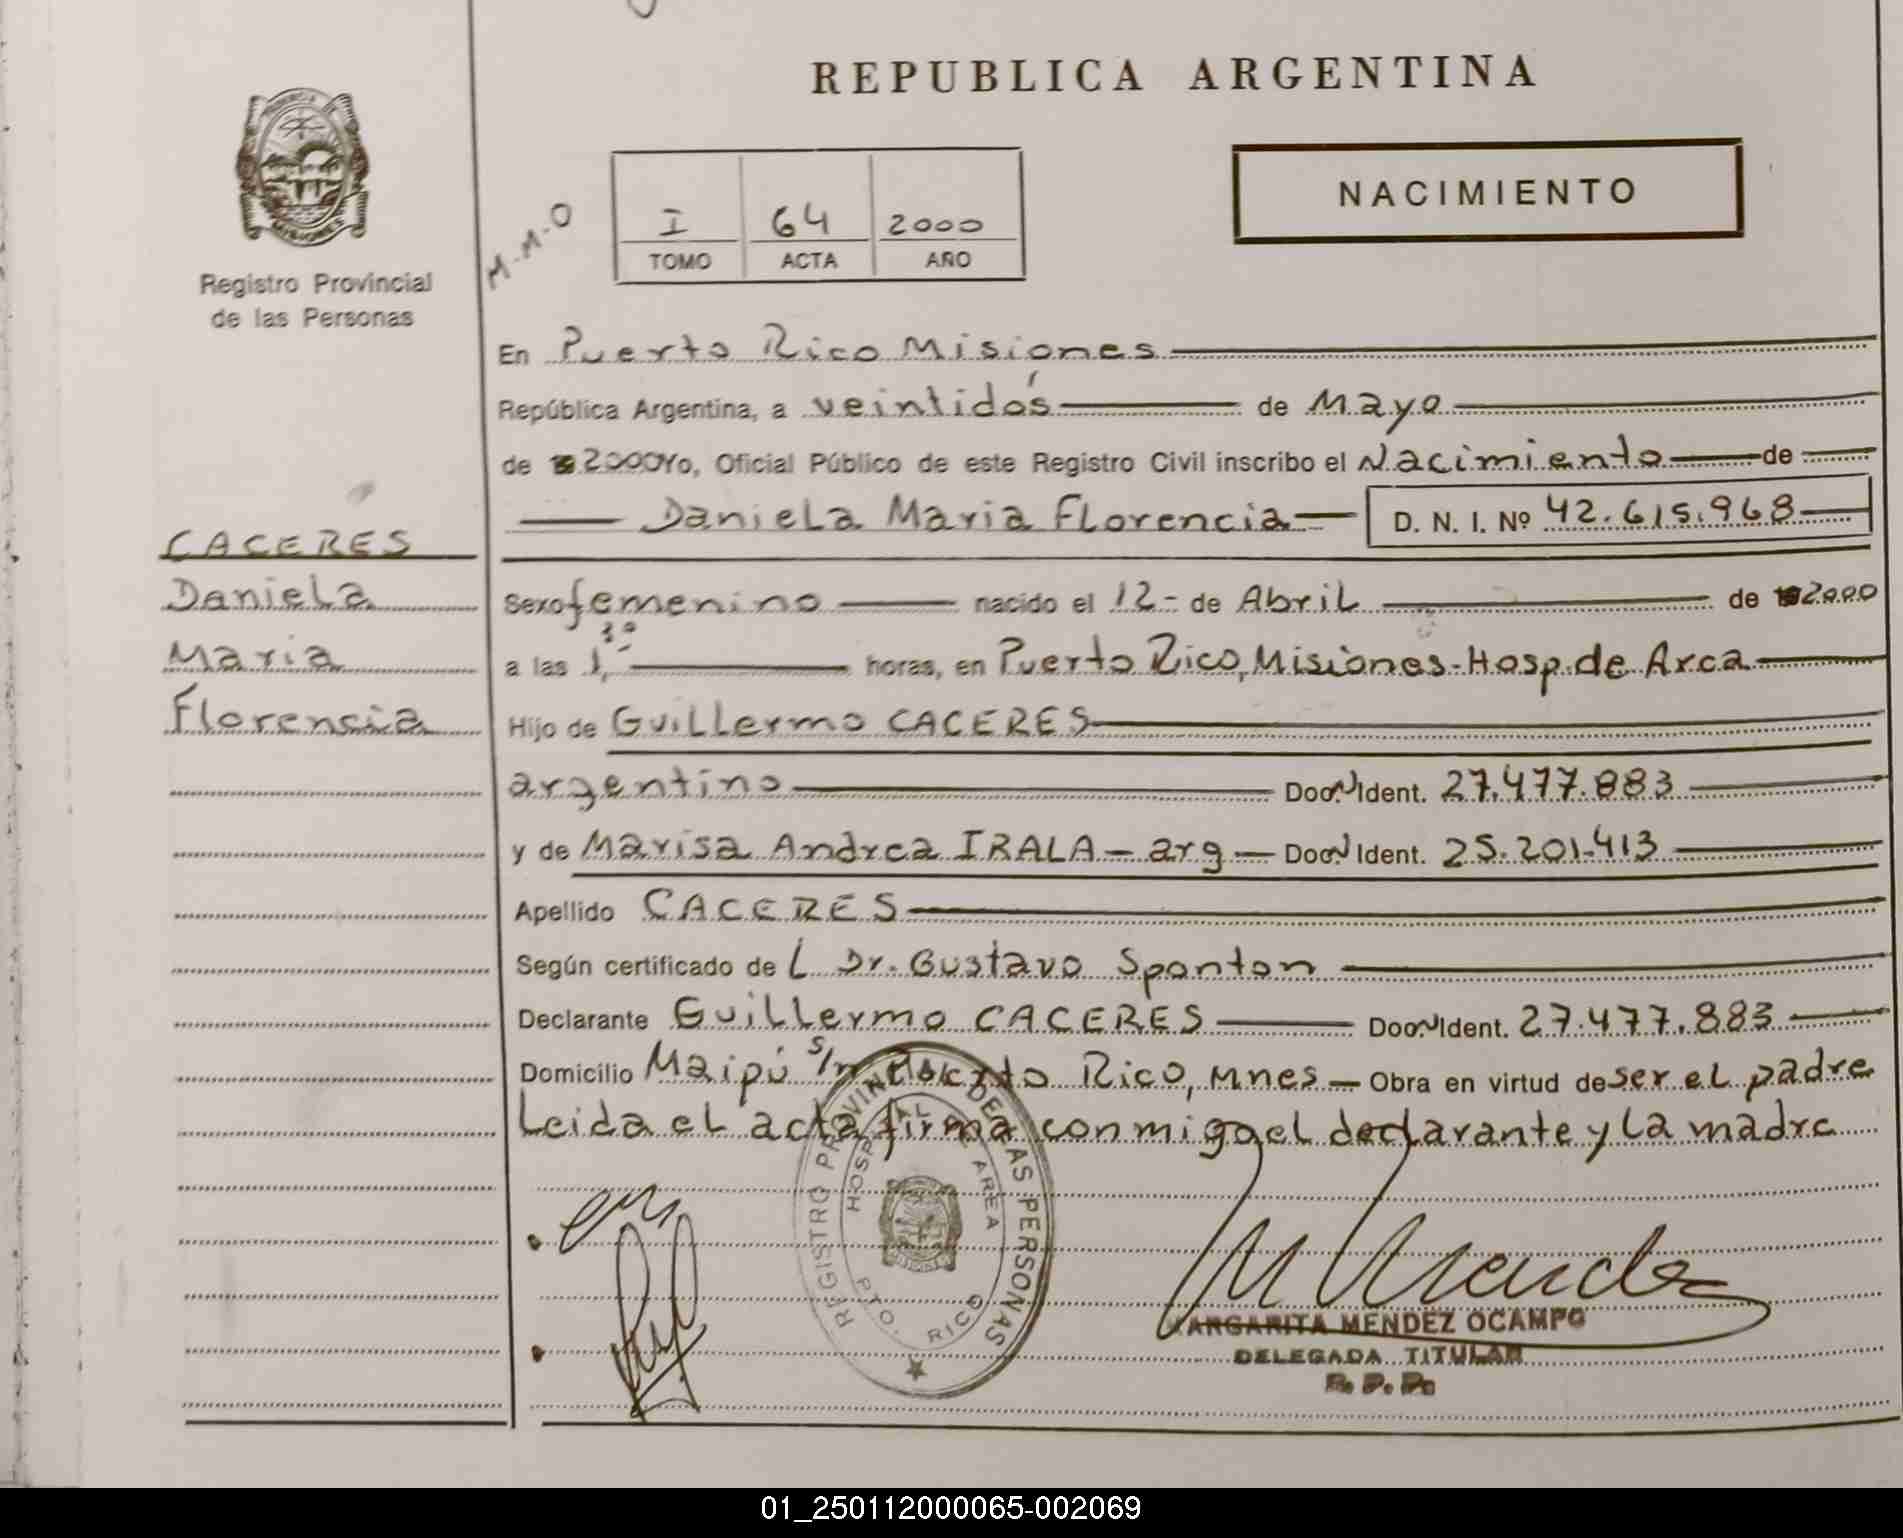 REPUBLICA ARGENTINA
NACIMIENTO
PROVINCIA DE
MISIONES
Registro Provincial
de las Personas
M-M-O
I 64 2000
TOMO ACTA AÑO
En Puerto Rico Misiones
República Argentina, a veintidós de Mayo
de 2000 Yo, Oficial Público de este Registro Civil inscribo el Nacimiento de
Daniela Maria Florencia D. N. I. Nº 42.615.968
CACERES
Daniela
Maria
Florencia
Sexo femenino nacido el 12- de Abril de 2000
a las 1, horas, en Puerto Rico, Misiones-Hosp. de Area
Hijo de Guillermo CACERES
argentino Doc. Ident. 27.477.883
y de Marisa Andrea IRALA - arg - Doc. Ident. 25.201.413
Apellido CACERES
Según certificado de L Dr. Gustavo Sponton
Declarante Guillermo CACERES Doc. Ident. 27.477.883
Domicilio Maipú s/n Puerto Rico, Mnes - Obra en virtud de ser el padre
Leida el acta firma conmigo el declarante y la madre
REGISTRO PROVINCIAL DE LAS PERSONAS
HOSPITAL AREA
PTO. RICO
M Mendez
MARGARITA MENDEZ OCAMPO
DELEGADA TITULAR
R. P. P.
01_250112000065-002069